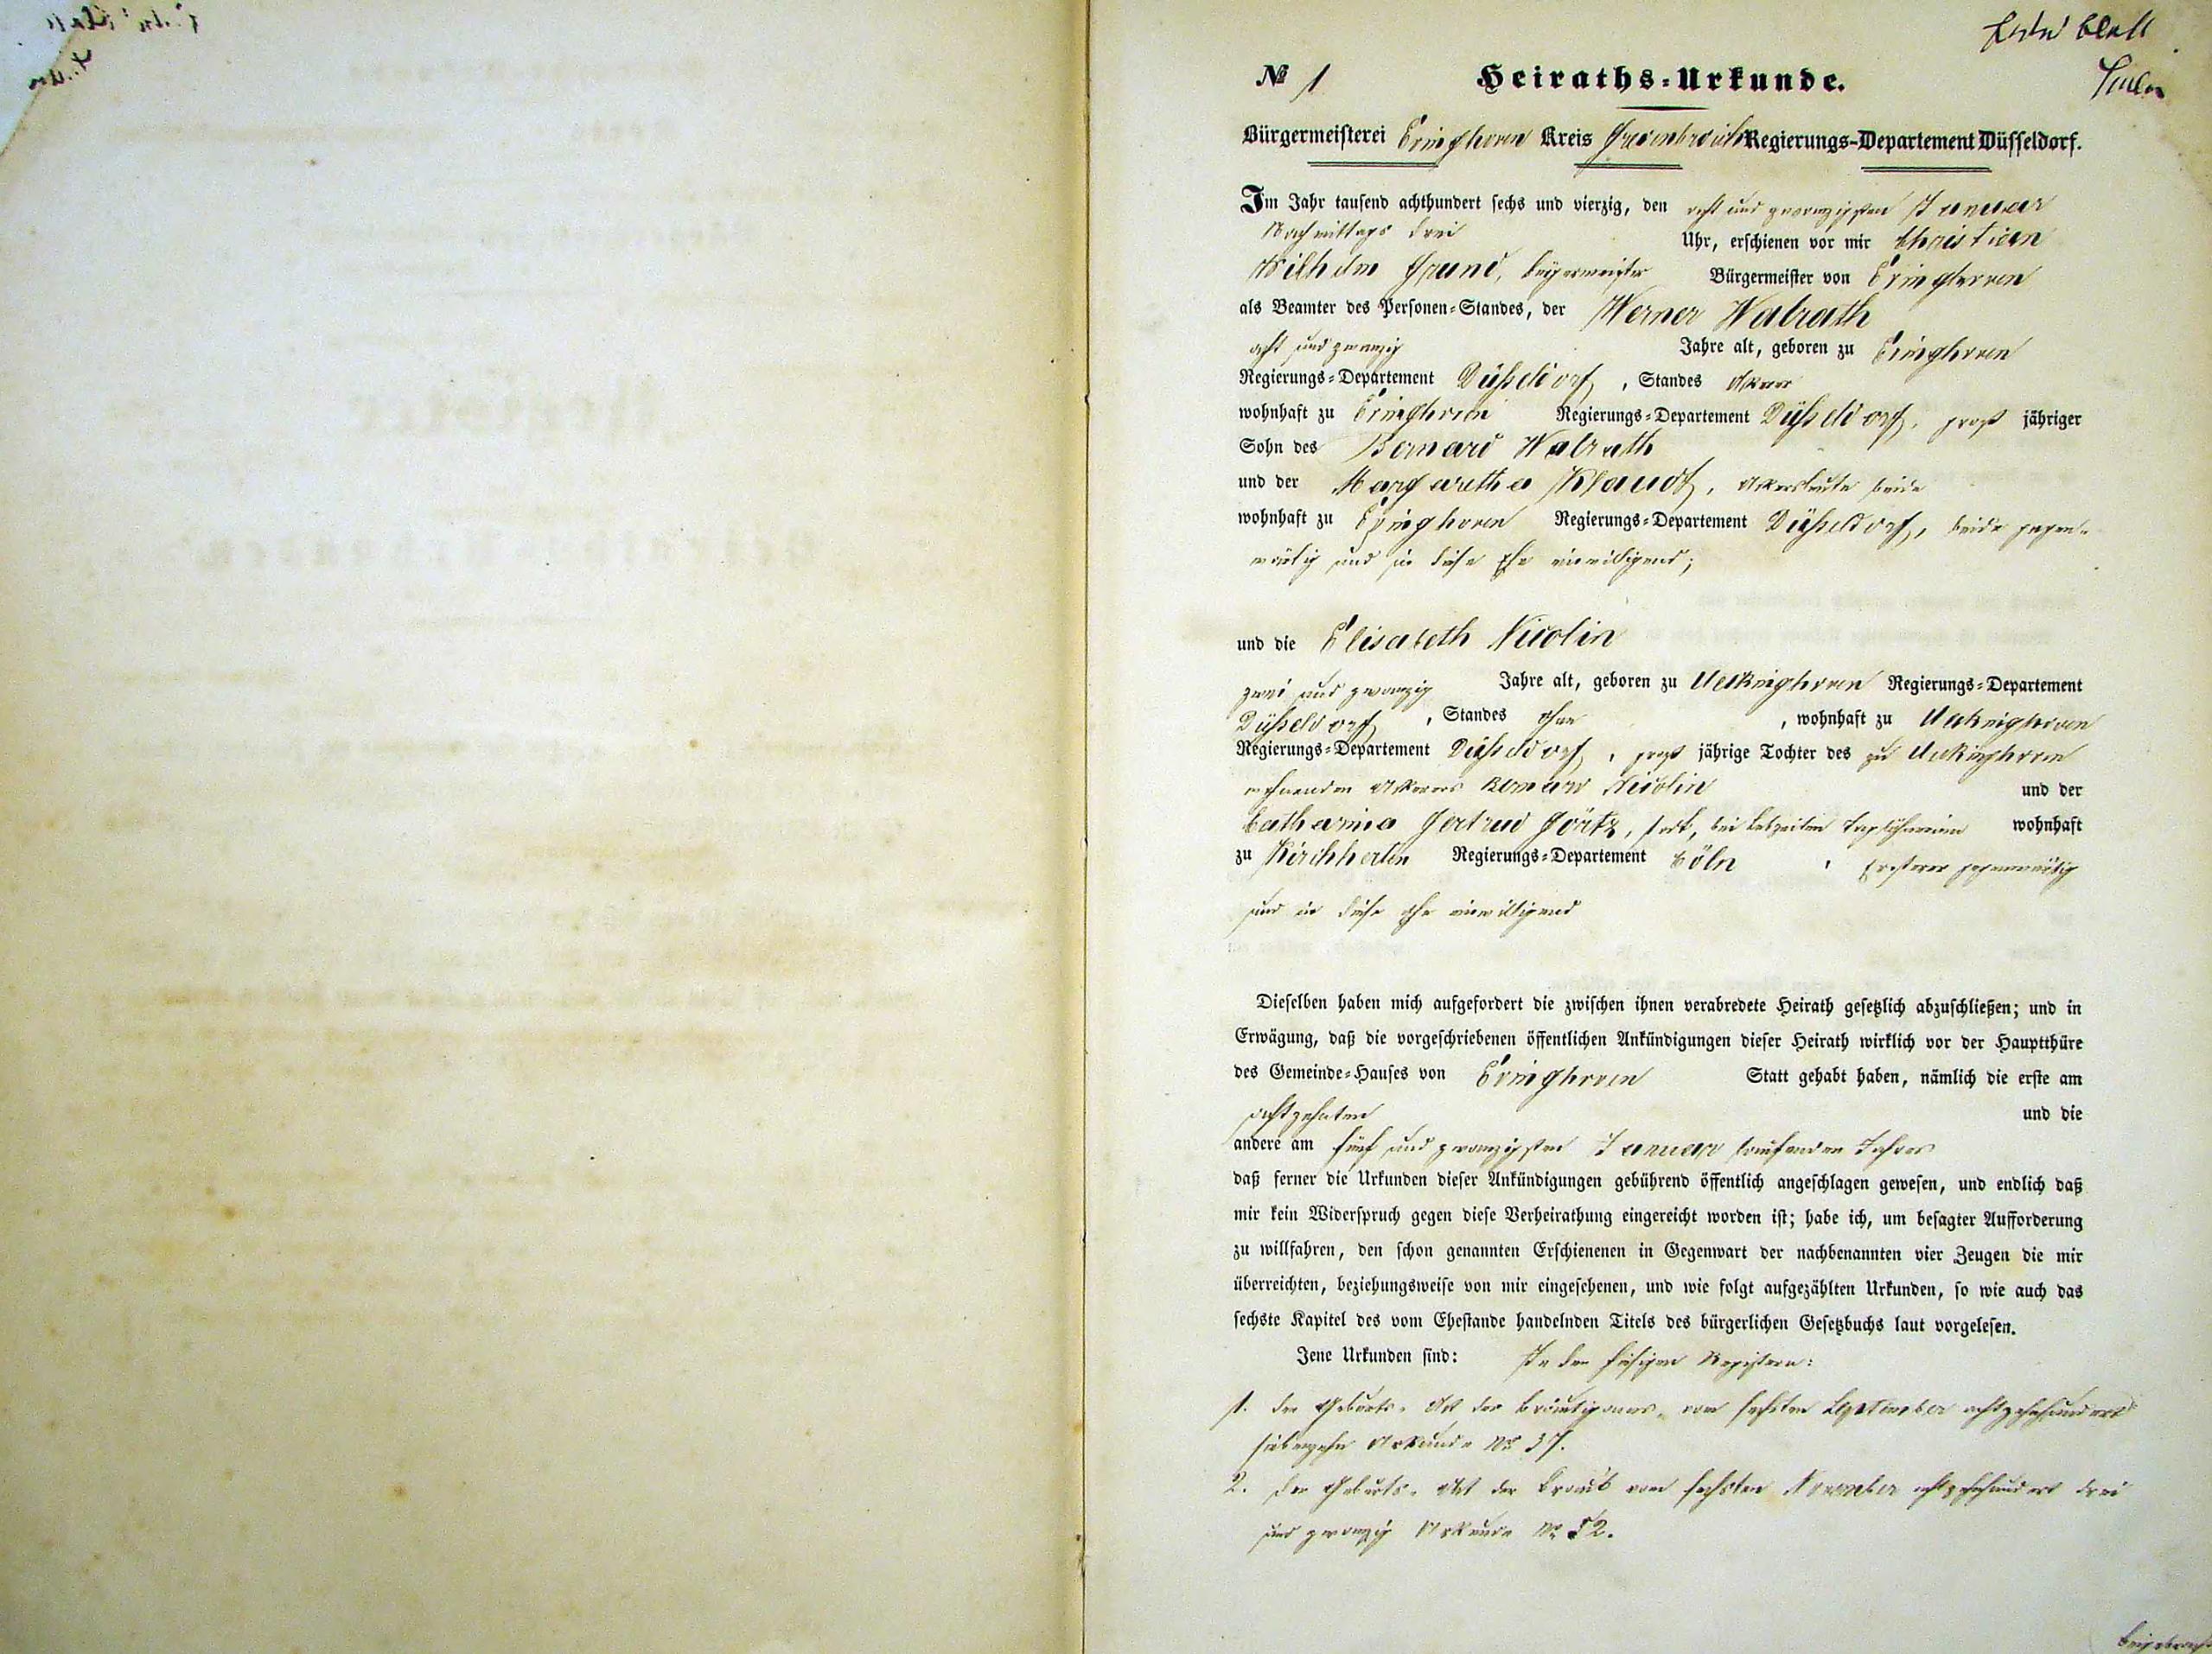 Erstes Blatt
№ 1 Heiraths-Urkunde.
Bürgermeisterei Evinghoven Kreis Grevenbroich Regierungs-Departement Düsseldorf.
Im Jahr tausend achthundert sechs und vierzig, den acht und zwanzigsten Januar
Nachmittags drei Uhr, erschienen vor mir Christian
Wilhelm Grund, Bürgermeister Bürgermeister von Evinghoven
als Beamter des Personen-Standes, der Werner Walrath
acht und zwanzig Jahre alt, geboren zu Evinghoven
Regierungs-Departement Düßeldorf, Standes Akerer
wohnhaft zu Evinghoven Regierungs-Departement Düßeldorf, groß jähriger
Sohn des Bernard Walrath
und der Margaretha Klaudt, Akersleute beide
wohnhaft zu Evinghoven Regierungs-Departement Düßeldorf, beide gegen-
wärtig und in diese Ehe einwilligend;
und die Elisabeth Nicolin
zwei und zwanzig Jahre alt, geboren zu Ueckinghoven Regierungs-Departement
Düßeldorf, Standes ohne, wohnhaft zu Ueckinghoven
Regierungs-Departement Düßeldorf, groß jährige Tochter des zu Ueckinghoven
wohnenden Akerers Nicolin und der
Catharina Gertrud Görtz, todt, bei Lebzeiten Taglöhnerinn wohnhaft
zu Kirchherten Regierungs-Departement Cöln, Ersterer gegenwärtig
und in diese Ehe einwilligend
Dieselben haben mich aufgefordert die zwischen ihnen verabredete Heirath gesetzlich abzuschließen; und in
Erwägung, daß die vorgeschriebenen öffentlichen Ankündigungen dieser Heirath wirklich vor der Hauptthüre
des Gemeinde-Hauses von Evinghoven Statt gehabt haben, nämlich die erste am
achtzehnten und die
andere am fünf und zwanzigsten Januar laufenden Jahres
daß ferner die Urkunden dieser Ankündigungen gebührend öffentlich angeschlagen gewesen, und endlich daß
mir kein Widerspruch gegen diese Verheirathung eingereicht worden ist; habe ich, um besagter Aufforderung
zu willfahren, den schon genannten Erschienenen in Gegenwart der nachbenannten vier Zeugen die mir
überreichten, beziehungsweise von mir eingesehenen, und wie folgt aufgezählten Urkunden, so wie auch das
sechste Kapitel des vom Ehestande handelnden Titels des bürgerlichen Gesetzbuchs laut vorgelesen.
Jene Urkunden sind: In den hiesigen Registern:
1. der Geburts-Akt des Bräutigams vom sechsten September achtzehnhundert
siebenzehn Urkunde № 37.
2. der Geburts-Akt der Braut vom sechsten November achtzehnhundert drei
und zwanzig Urkunde № 52.